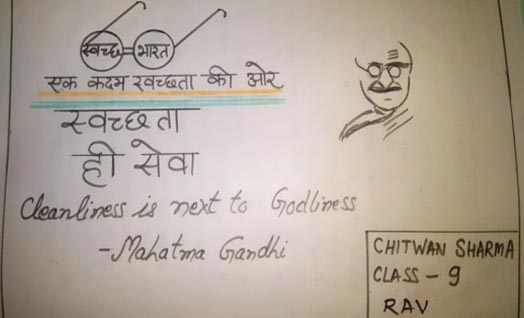 स्वच्छ भारत
एक कदम स्वच्छता की ओर
स्वच्छता
ही सेवा
Cleanliness is next to Godliness
-Mahatma Gandhi
CHITWAN SHARMA
CLASS - 9
RAV